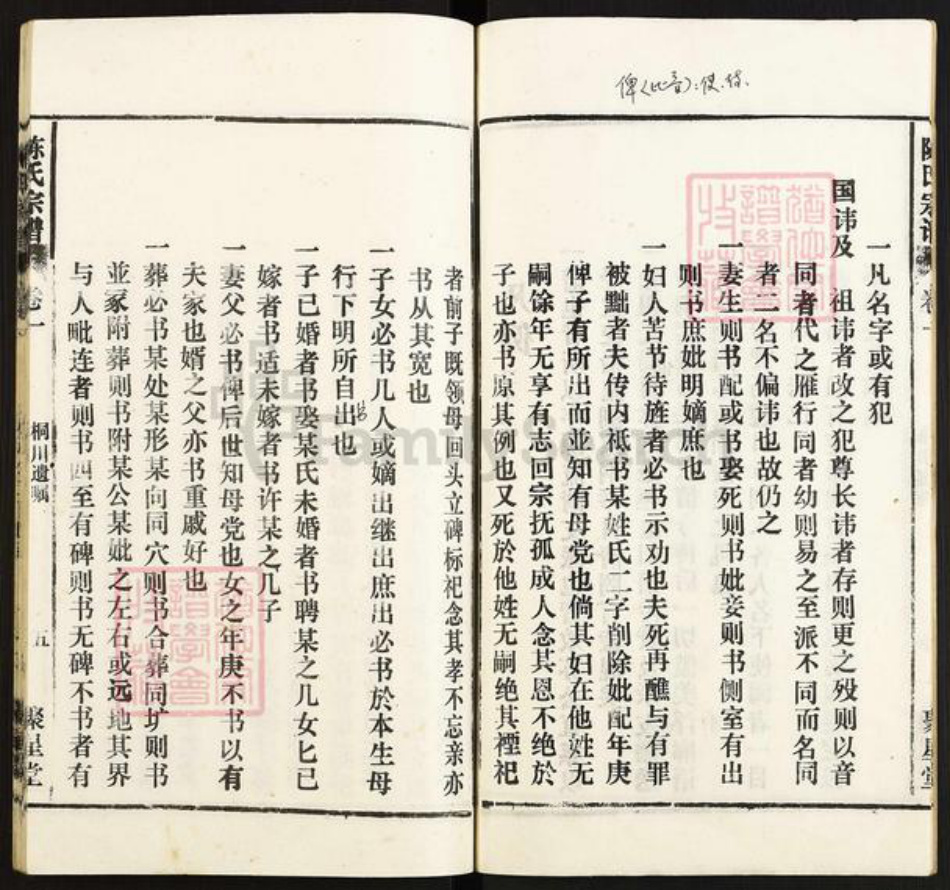 俾(比音):使.
陈氏宗谱
卷一
一凡名字或有犯
国讳及 祖讳者改之犯尊长讳者存则更之殁则以音
同者代之雁行同者幼则易之至派不同而名同
者二名不偏讳也故仍之
一妻生则书配或书娶死则书妣妾则书侧室有出
则书庶妣明嫡庶也
一妇人苦节待旌者必书示劝也夫死再醮与有罪
被黜者夫传内祗书某姓氏二字削除妣配年庚
俾子有所出而並知有母党也倘其妇在他姓无
嗣馀年无享有志回宗抚孤成人念其恩不绝於
子也亦书原其例也又死於他姓无嗣绝其禋祀
聚星堂
者前子既领母回头立碑标祀念其孝不忘亲亦
书从其宽也
一子女必书几人或嫡出继出庶出必书於本生母
行下明所自出也
一子已婚者书娶某氏未婚者书聘某之几女匕已
嫁者书适未嫁者书许某之几子
一妻父必书俾后世知母党也女之年庚不书以有
夫家也婿之父亦书重戚好也
一葬必书某处某形某向同穴则书合葬同圹则书
並冢附葬则书附某公某妣之左右或远地其界
与人毗连者则书四至有碑则书无碑不书者有
陈氏宗谱
卷一
桐川遗嘱
五
聚星堂
FamilySearch